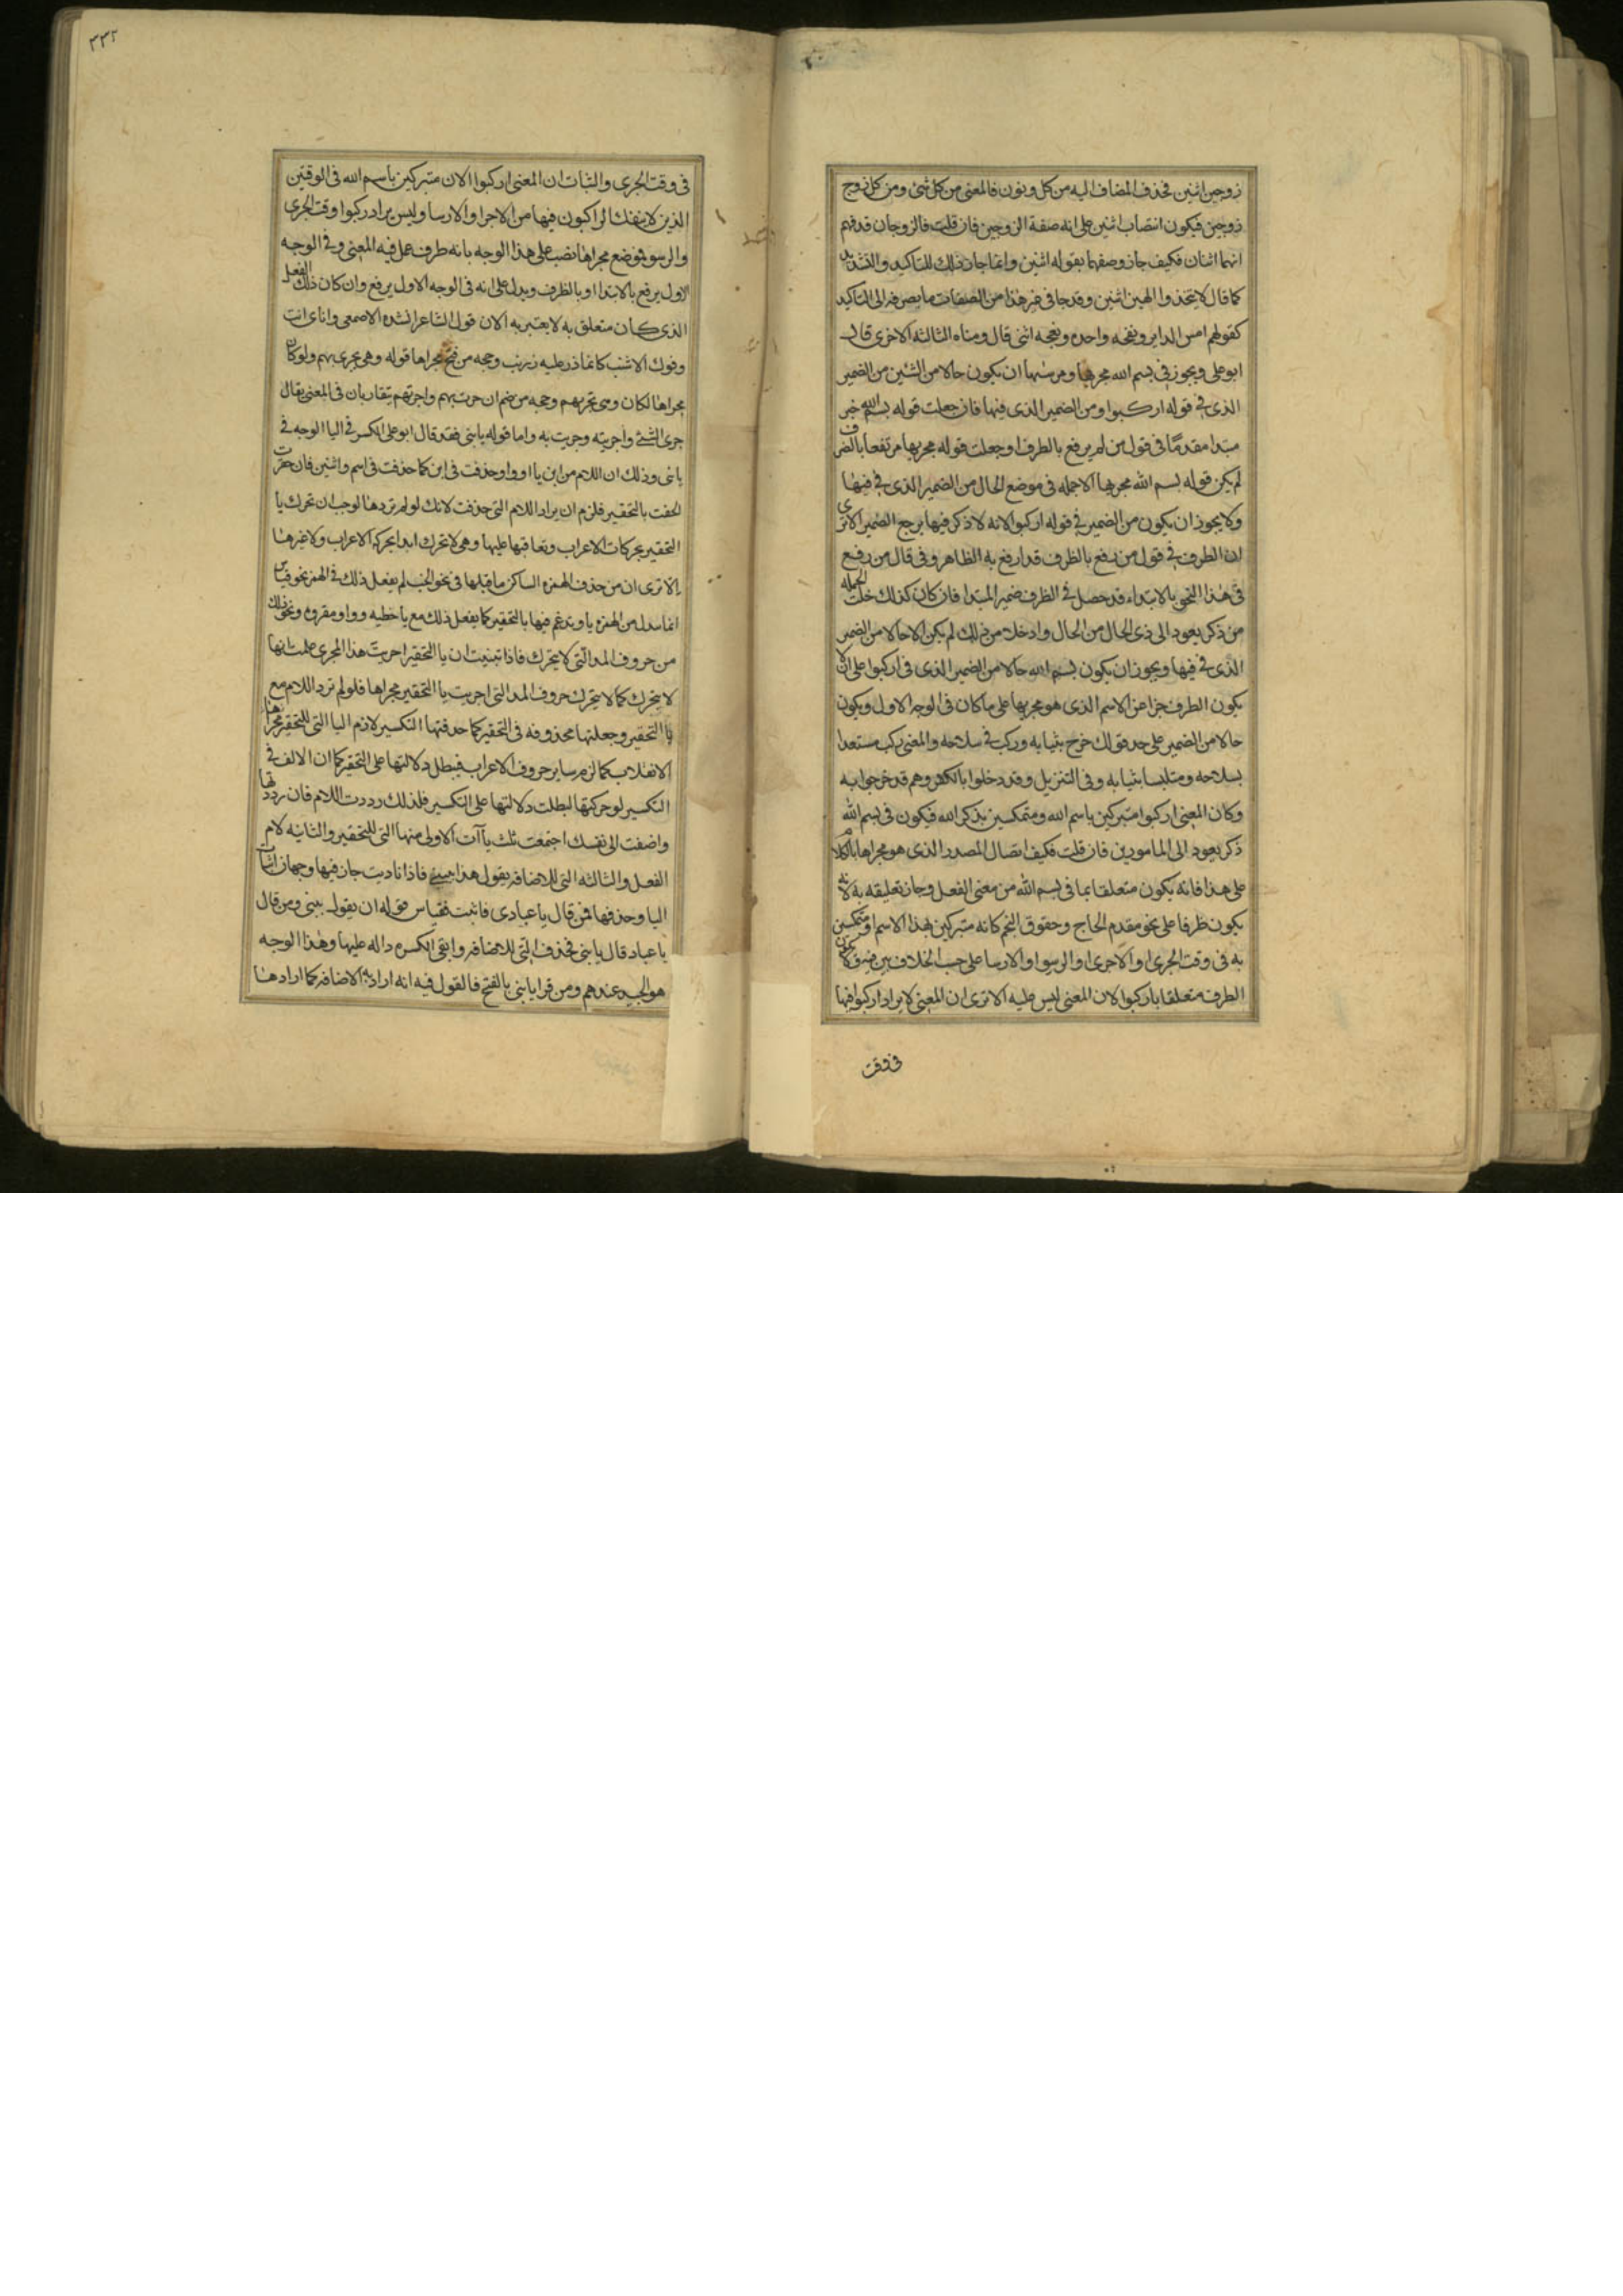 زوجين اثنين فحذف المضاف اليه من كل ونون فالمعنى من كل شئ ومن كل زوج
زوجين فيكون انتصاب اثنين على انه صفة الزوجين فان قلت فالزوجان قد فهم
انهما اثنان فكيف جاز وصفهما بقوله اثنين وانما جاز ذلك للتاكيد والتشديد
كما قال لا تتخذوا الهين اثنين وقد جا في غير هذا من الصفات ما يصرفه الى التاكيد
كقولهم امس الدابر ونفخه واحده ونعجه انثى قال ومناه الثالثه الاخرى قال
ابو على ويجوز في بسم الله مجريها ومرسيها ان يكون حالا من الشيئن من الضمير
الذى في قوله اركبوا ومن الضمير الذى فيها فان جعلت قوله بسم الله خبر
مبتدا مقدمًا في قول من لم يرفع بالظرف او جعلت قوله مجريها مرتفعا بالظرف
لم يكن قوله بسم الله مجريها الا جمله فى موضع الحال من الضمير الذى في فيها
ولا يجوز ان يكون من الضمير في قوله اركبوا لانه لا ذكر فيها يرجع الضمير الا ترى
ان الظرف في قول من رفع بالظرف قد ارفع به الظاهر وفى قال من رفع
فى هذا النحو بالابتداء قد حصل في الظرف ضمير المبتدا فان كان كذلك خلت الجمله
من ذكر يعود الى ذى الحال من الحال واذ خلا من ذلك لم يكن الا حالا من الضمير
الذى في فيها ويجوز ان يكون بسم الله حالا من الضمير الذى فى اركبوا على ان لا
يكون الظرف خبرا عن الاسم الذى هو مجريها على ما كان فى الوجه الاول ويكون
حالا من الضمير على حد قولك خرج بثيابه وركب في سلاحه والمعنى ركب مستعدا
بسلاحه ومتلبسا بثيابه وفى التنزيل وقد دخلوا بالكفر وهم قد خرجوا به
وكان المعنى اركبوا متبركين باسم الله ومتمكسين بذكر الله فيكون فى بسم الله
ذكر يعود الى المامورين فان قلت فكيف اتصال المصدر الذى هو مجراها بالكلام
على هذا فانه يكون متعلقا بما فى بسم الله من معنى الفعل وجاز تعليقه به لانه
يكون ظرفا على نحو مقدم الحاج وحقوق النجم كانه متبركين بهذا الاسم او متمكسين
به فى وقت الجرى او الاجرى او الرسوا او الارسا على حسب الخلاف بين ولا يكون
الظرف متعلقا باركبوا لان المعنى ليس عليه الا ترى ان المعنى لا يراد اركبوا فيها
فى وقت
٢٣٢
فى وقت الجرى والثبات ان المعنى اركبوا الان متبركين باسم الله فى الوقتين
الذين لا ينفك الراكبون فيها من الاجرا والارسا وليس يراد ركبوا وقت الجرى
والرسو فموضع مجراها نصب على هذا الوجه بانه ظرف عمل فيه المعنى وفى الوجه
الاول يرفع بالابتدا او بالظرف ويدل على انه فى الوجه الاول يرفع وان كان ذلك الفعل
الذى كان متعلق به لا يعتبر به الان قول الشاعر انشده الاصمعى وانا اى انت
وفوك الاشنب كانما ذر عليه زرنب وحجه من فتح مجراها قوله وهى تجرى بهم ولو كان
مجراها لكان وهى تجريهم وحجه من ضم ان جرت بهم واجرتهم يتقاربان فى المعنى يقال
جرى الشئ واجريته وجريت به واما قوله يا بنى فقد قال ابو على الكسر فى اليا الوجه في
يا بنى وذلك ان اللام من ابن يا او واو حذفت فى ابن كما حذفت فى اسم واثنين فان حقرت
الحقت يا التحقير فلزم ان يراد اللام التى حذفت لانك لو لم تردها لوجب ان تحرك يا
التحقير بحركات الاعراب وتعاقبها عليها وهى لا تحرك ابدا بحركه الاعراب ولا غيرها
الا ترى ان من حذف الهمزه الساكن ما قبلها فى نحو الخب لم يفعل ذلك فى الهمز نحو
انما يبدل من الهمزه يا ويدغم فيها يا التحقير كما يفعل ذلك مع يا خطيه وواو مقروه ونحو ذلك
من حروف المد التى لا تحرك فاذا تبينت ان يا التحقير اجريت هذا المجرى علمت انها
لا تتحرك كما لا تتحرك حروف المد التى اجريت يا التحقير مجراها فلو لم ترد اللام مع
يا التحقير وجعلتها محذوفه فى التحقير كما حذفتها التكسير لازم اليا التى للتحقير مجراها
الانقلاب كما لزم ساير حروف الاعراب فيبطل دلالتها على التحقير كما ان الالف في
التكسير لو حركتها لبطلت دلالتها على التكسير فلذلك رددت اللام فان رددتها
واضفت الى نفسك اجتمعت ثلث يآآت الاولى منها التى للتحقير والثانيه لام
الفعل والثالثه التى للاضافه يقول هذا بنيى فاذا ناديت جاز فيها وجهان اثبات
اليا وحذفها فمن قال يا عبادى فاثبت فقياس قوله ان يقول بنيى ومن قال
يا عباد قال يا بنى فحذف التى للاضافه وابقى الكسره داله عليها وهذا الوجه
هو الجيد عندهم ومن قرا يا بنى بالفتح فالقول فيه انه اراد به الاضافه كما ارادها